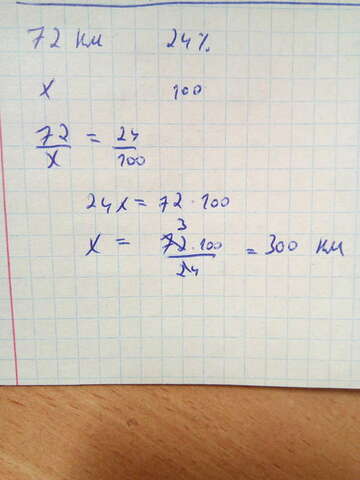 72 км 24%
x 100
72/x = 24/100
24x = 72 · 100
x = 3 72 · 100 / 24 = 300 км